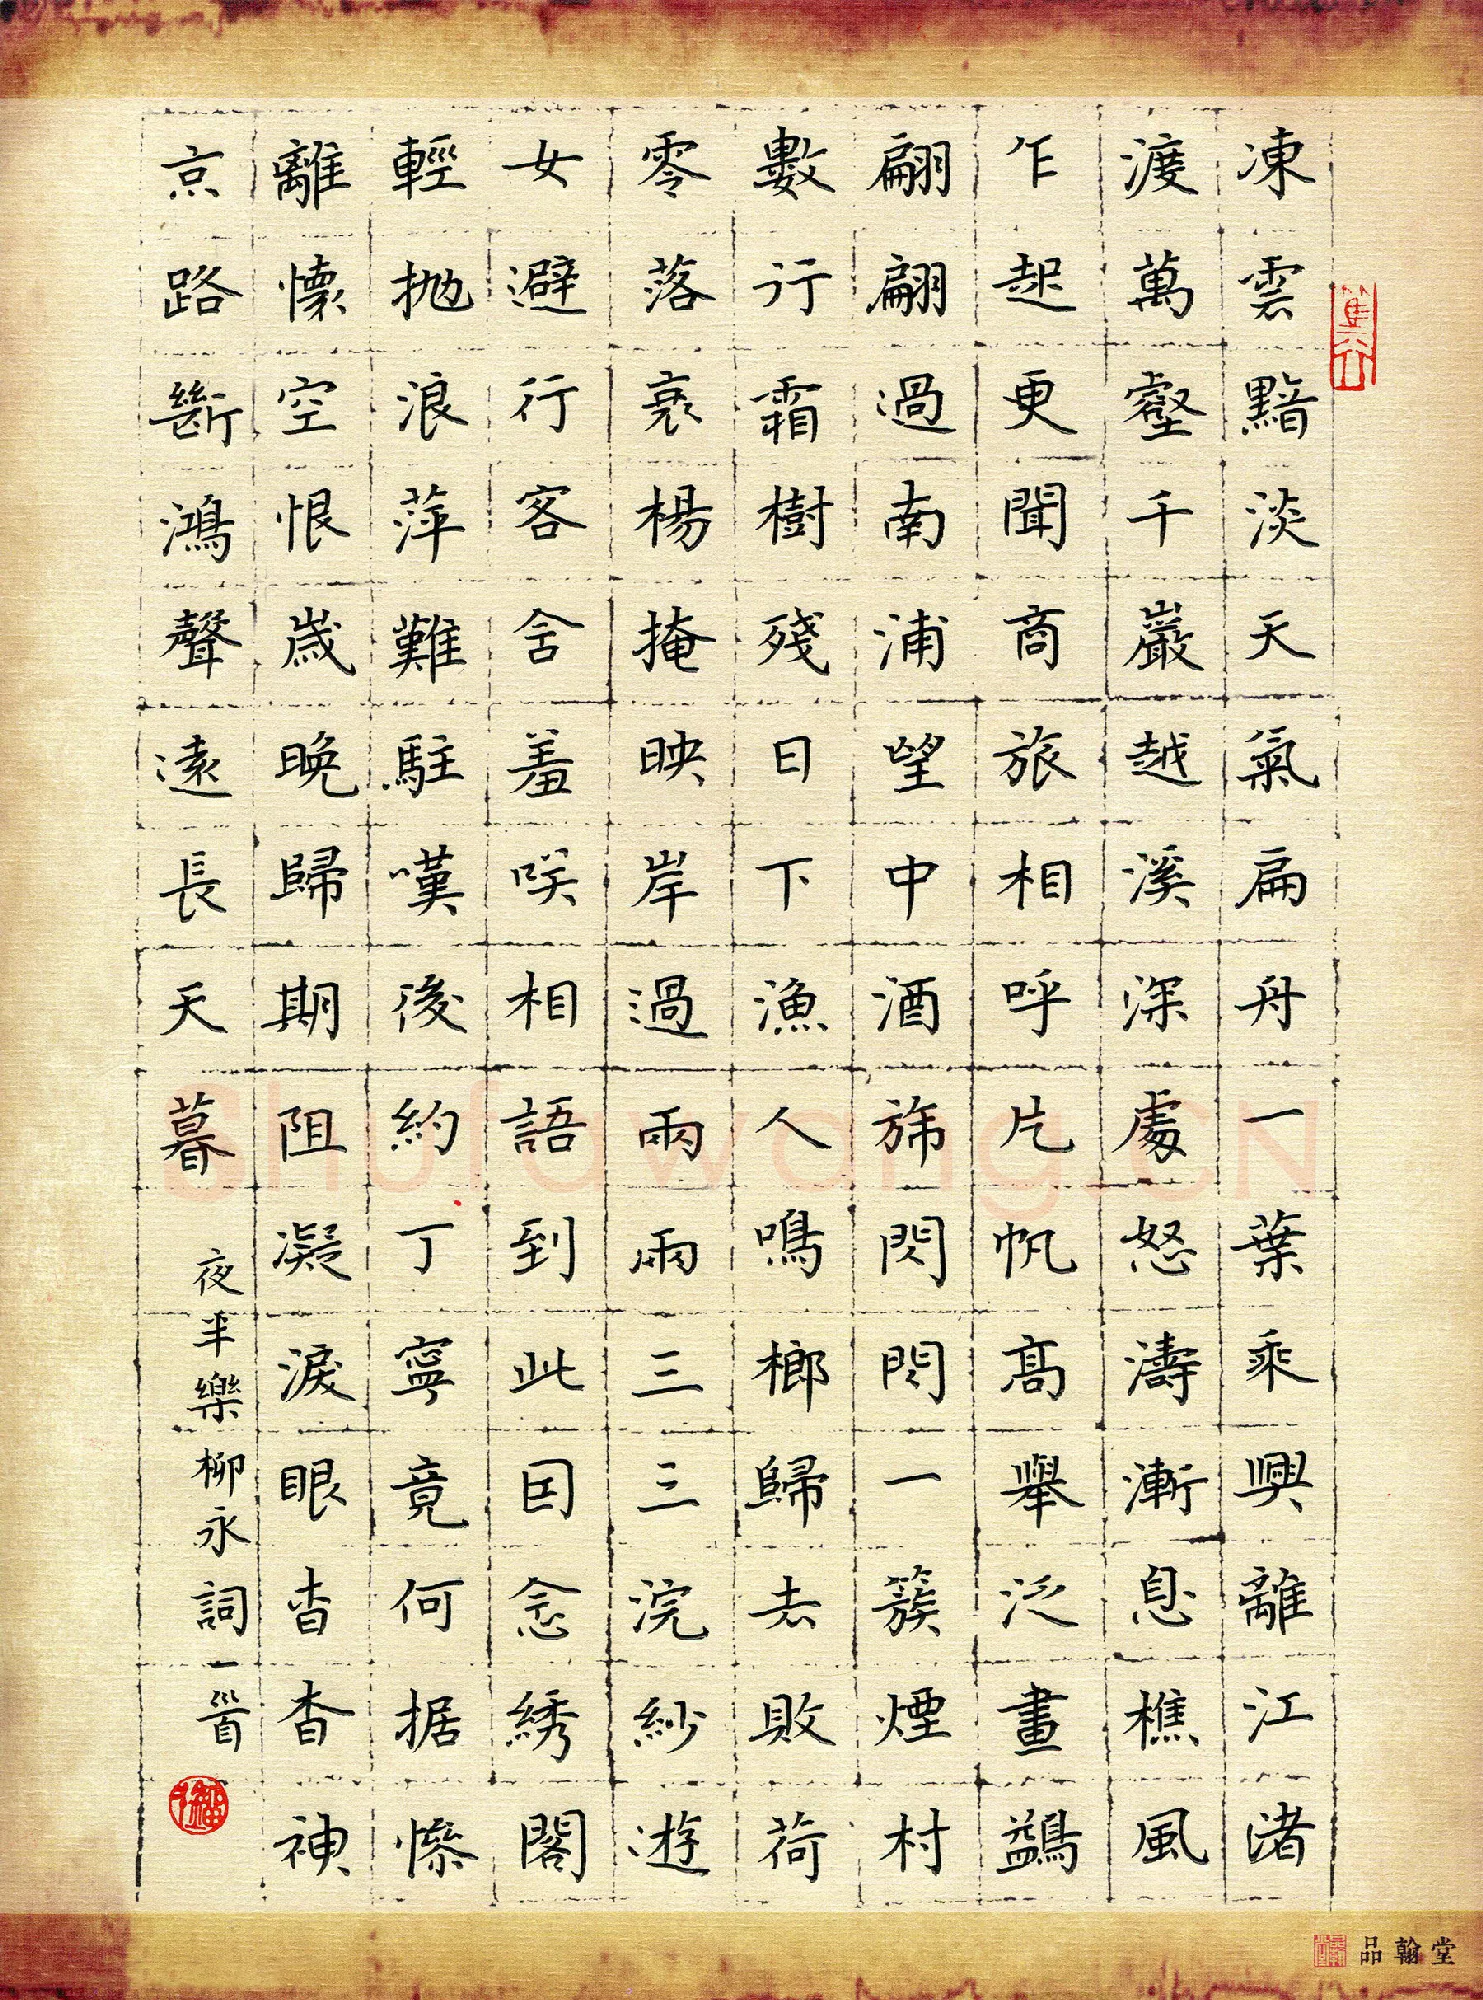 凍雲黯淡天氣扁舟一葉乘興離江渚
渡萬壑千巖越溪深處怒濤漸息樵風
乍起更聞商旅相呼片帆高舉泛畫鷁
翩翩過南浦望中酒旆閃閃一簇煙村
數行霜樹殘日下漁人鳴榔歸去敗荷
零落衰楊掩映岸過兩兩三三浣紗遊
女避行客含羞咲相語到此囙念綉閣
輕抛浪萍難駐嘆後約丁寧竟何据慘
離懷空恨歲晚歸期阻凝淚眼杳杳神
京路斷鴻聲遠長天暮
夜半樂柳永詞一首
篤行
Shufawang.CN
品翰堂